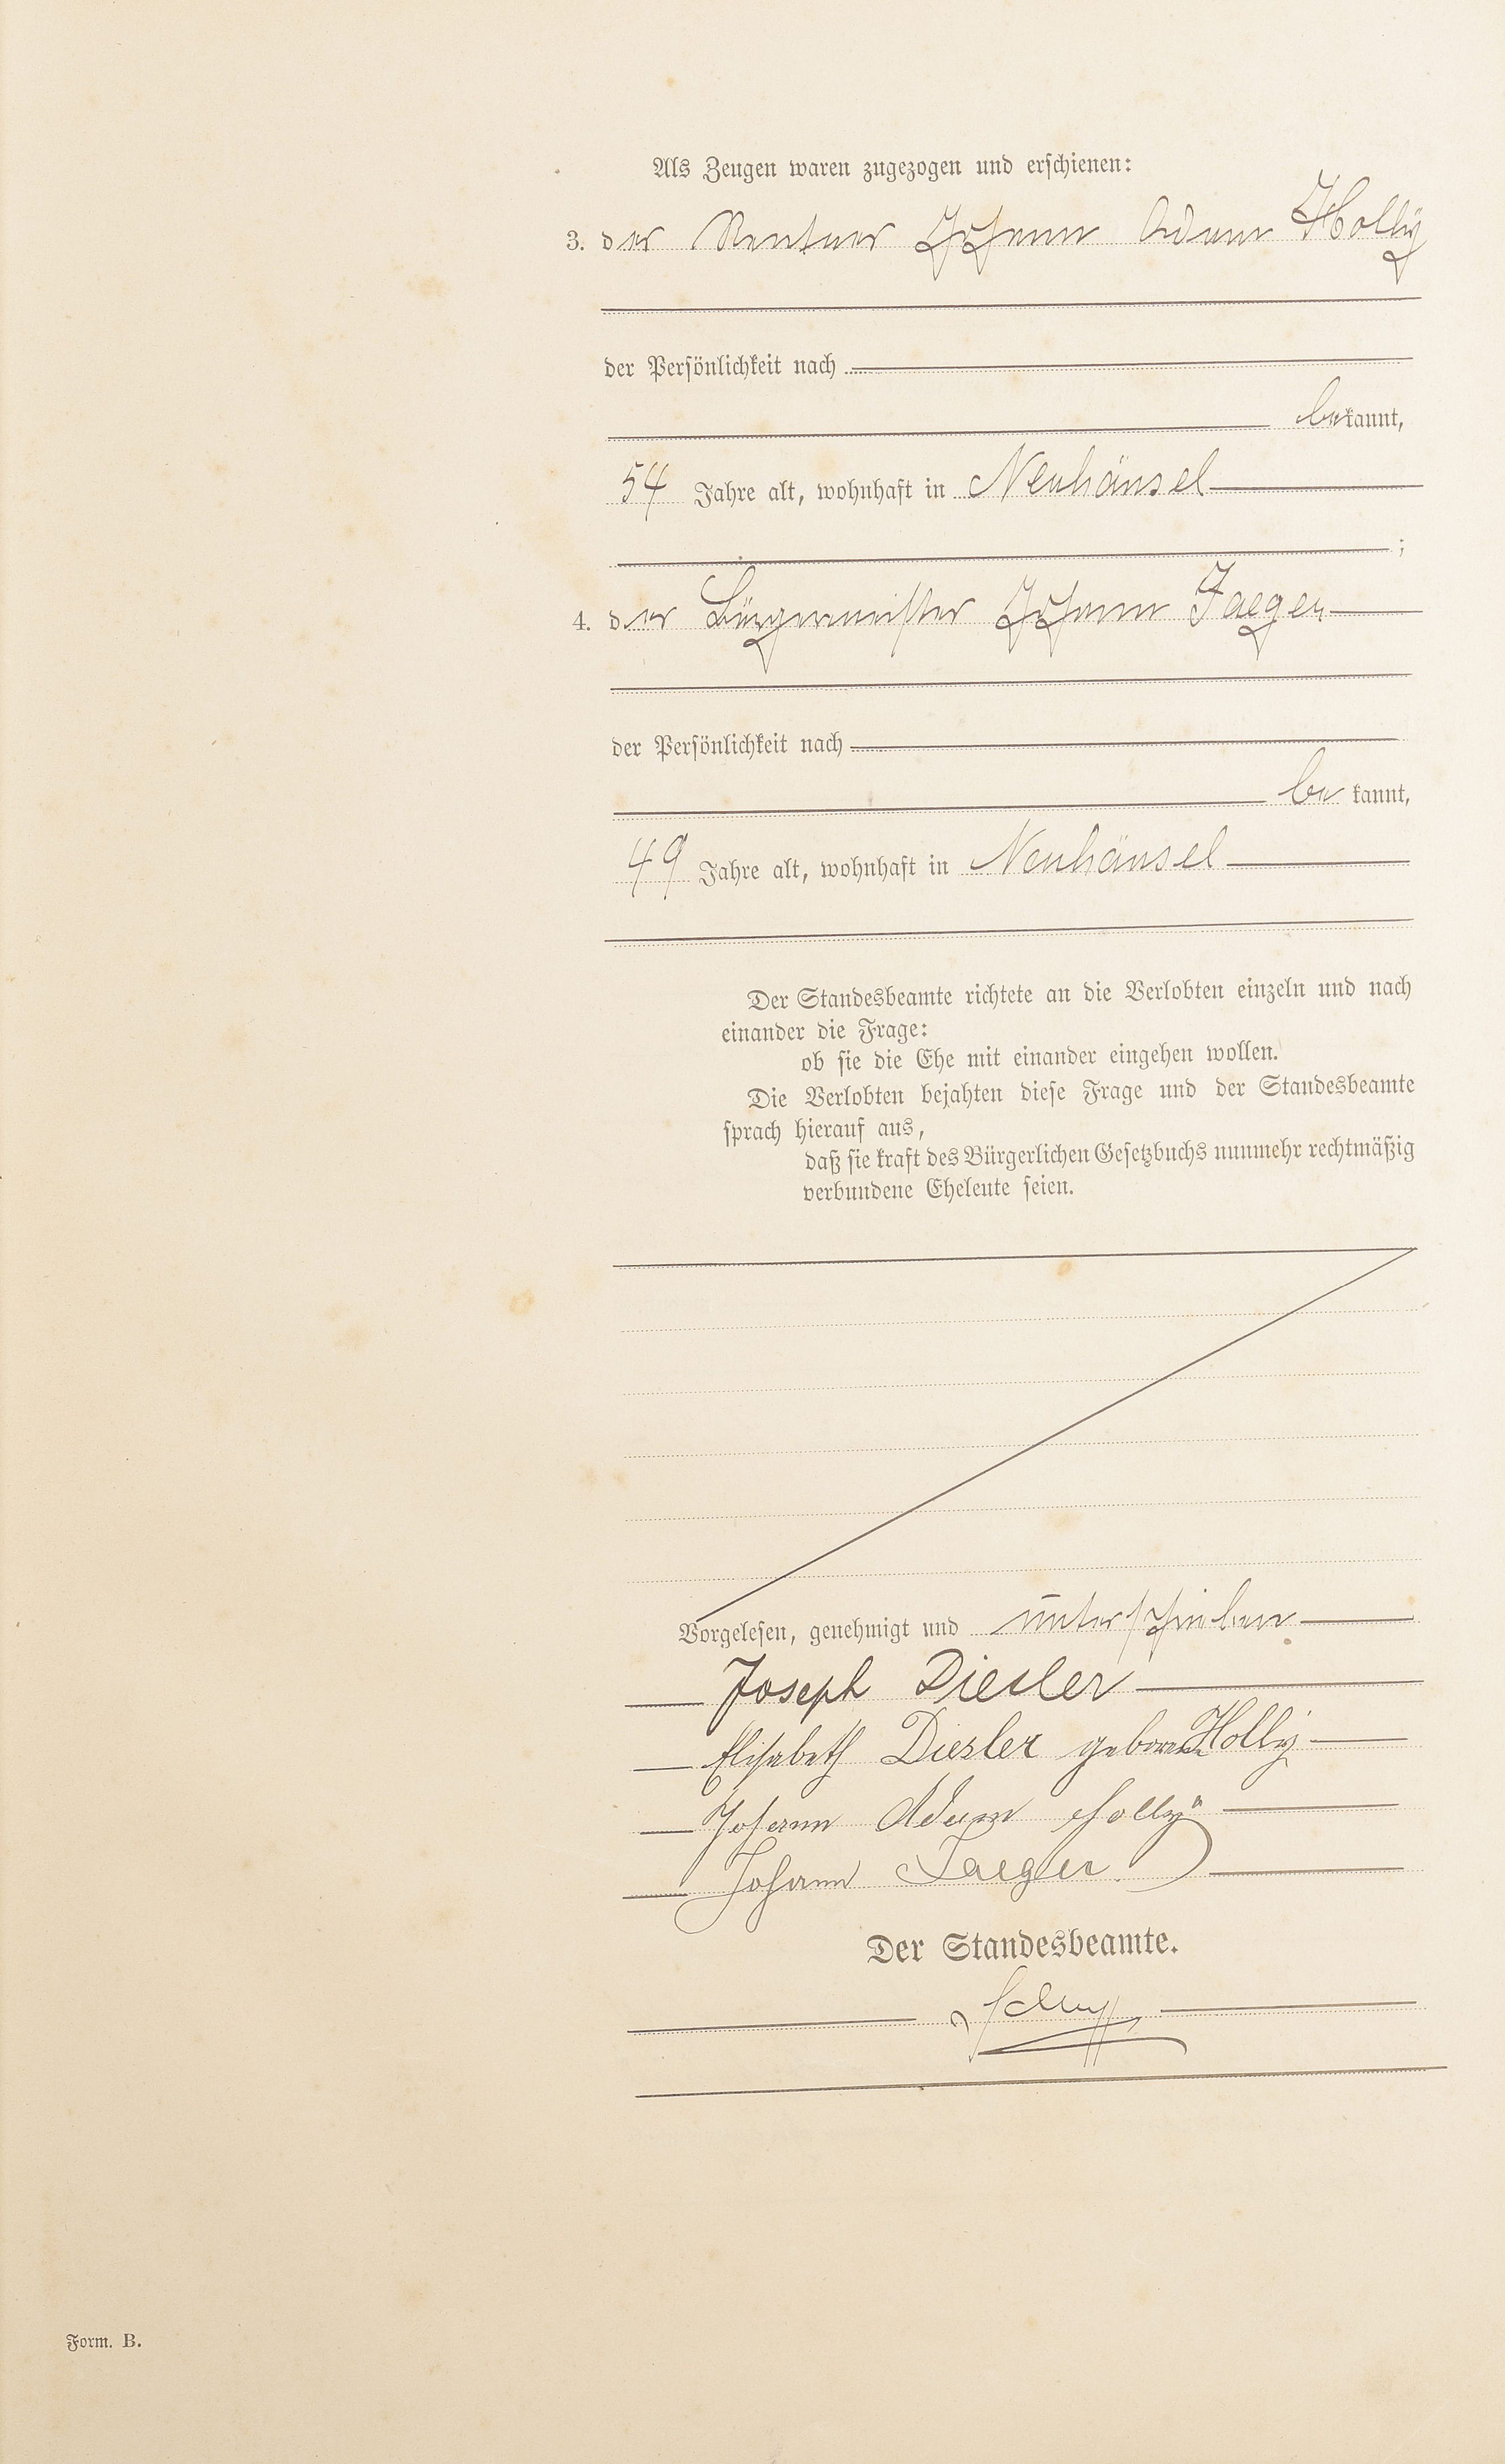 Als Zeugen waren zugezogen und erschienen:
3. der Rentner Johann Adam Hollÿ
der Persönlichkeit nach
bekannt,
54 Jahre alt, wohnhaft in Neuhäusel
;
4. der Bürgermeister Johann Jaeger
der Persönlichkeit nach
be kannt,
49 Jahre alt, wohnhaft in Neuhäusel
Der Standesbeamte richtete an die Verlobten einzeln und nach
einander die Frage:
ob sie die Ehe mit einander eingehen wollen.
Die Verlobten bejahten diese Frage und der Standesbeamte
sprach hierauf aus,
daß sie kraft des Bürgerlichen Gesetzbuchs nunmehr rechtmäßig
verbundene Eheleute seien.
Vorgelesen, genehmigt und unterschrieben
Joseph Diesler
Elisabeth Diesler geborene Holly
Johann Adam Hollÿ
Johann Jaeger
Der Standesbeamte.
Form. B.